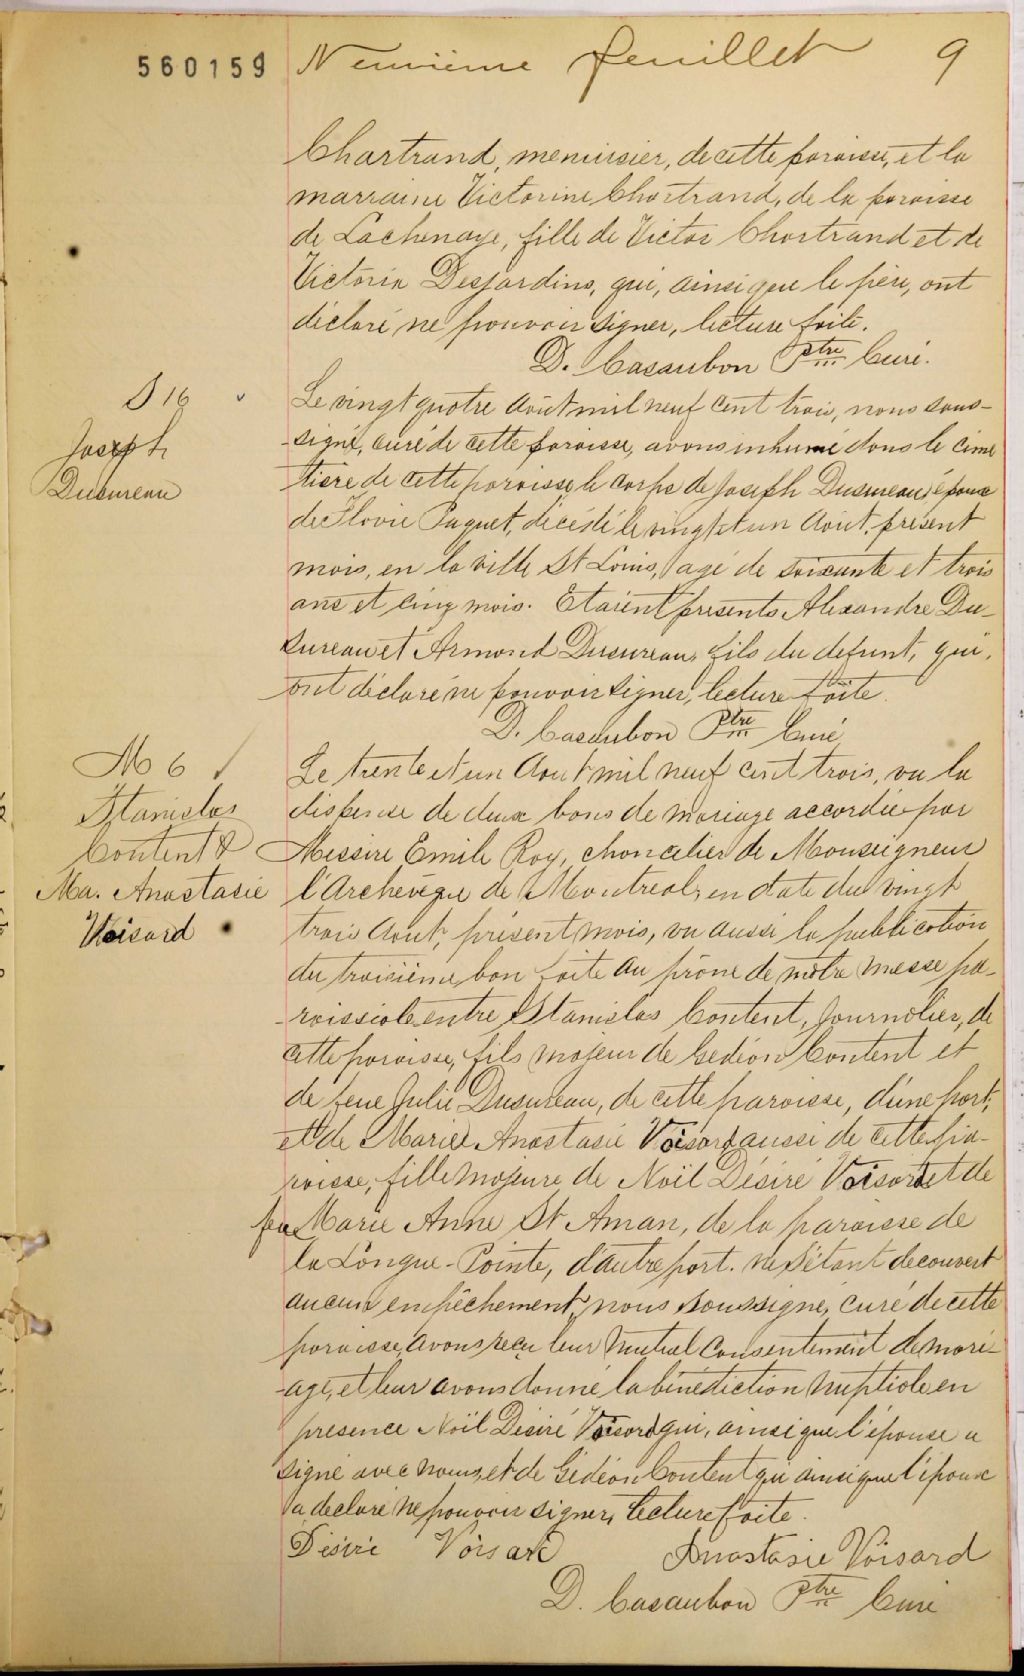 560159 Neuvième feuillet 9
Chartrand, menuisier, de cette paroisse, et la
marraine Victorine Chartrand, de la paroisse
de Lachenaye, fille de Victor Chartrand et de
Victoria Desjardins, qui, ainsi que le père, ont
déclaré ne pouvoir signer, lecture faite.
D. Casaubon Ptre Curé.
S 16
Joseph
Dusureau
Le vingt quatre Août mil neuf cent trois, nous sous-
-signé, curé de cette paroisse, avons inhumé dans le cime
tière de cette paroisse le corps de Joseph Dusureau, époux
de Flavie Paquet, décédé le vingt et un Août, présent
mois, en la ville St Louis, agé de soixante et trois
ans et cinq mois. Etaient présents Alexandre Du-
sureau et Armond Dusureau, fils du defunt, qui,
ont déclaré ne pouvoir signer, lecture faite.
D. Casaubon Ptre Curé
M 6
Stanislas
Content &
Ma. Anastasie
Voisard
Le trente et un Août mil neuf cent trois, vu la
dispense de deux bans de mariage accordée par
Messire Emile Roy, chancelier de Monseigneur
l'Archevêque de Montréal, en date du vingt
trois Août, présent mois, vu aussi la publication
du troisième ban faite au prône de nôtre messe pa-
-roissiale entre Stanislas Content, Journalier, de
cette paroisse, fils majeur de Gédéon Content et
de feue Julie Dusureau, de cette paroisse, d'une part,
et de Marie Anastasie Voisard aussi de cette pa-
roisse, fille majeure de Noël Désiré Voisard et de
feu Marie Anne St Aman, de la paroisse de
la Longue-Pointe, d'autre part. ne s'étant decouvert
aucun empêchement, nous soussigné, curé de cette
paroisse, avons reçu leur mutuel consentement de mari-
-age, et leur avons donné la bénédiction nuptiale en
presence Noël Désiré Voisard qui, ainsi que l'épouse a
signé avec nous, et de Gédéon Content qui ainsi que l'époux
a declaré ne pouvoir signer, lecture faite.
Désiré Voisard Anastasie Voisard
D. Casaubon Ptre Curé